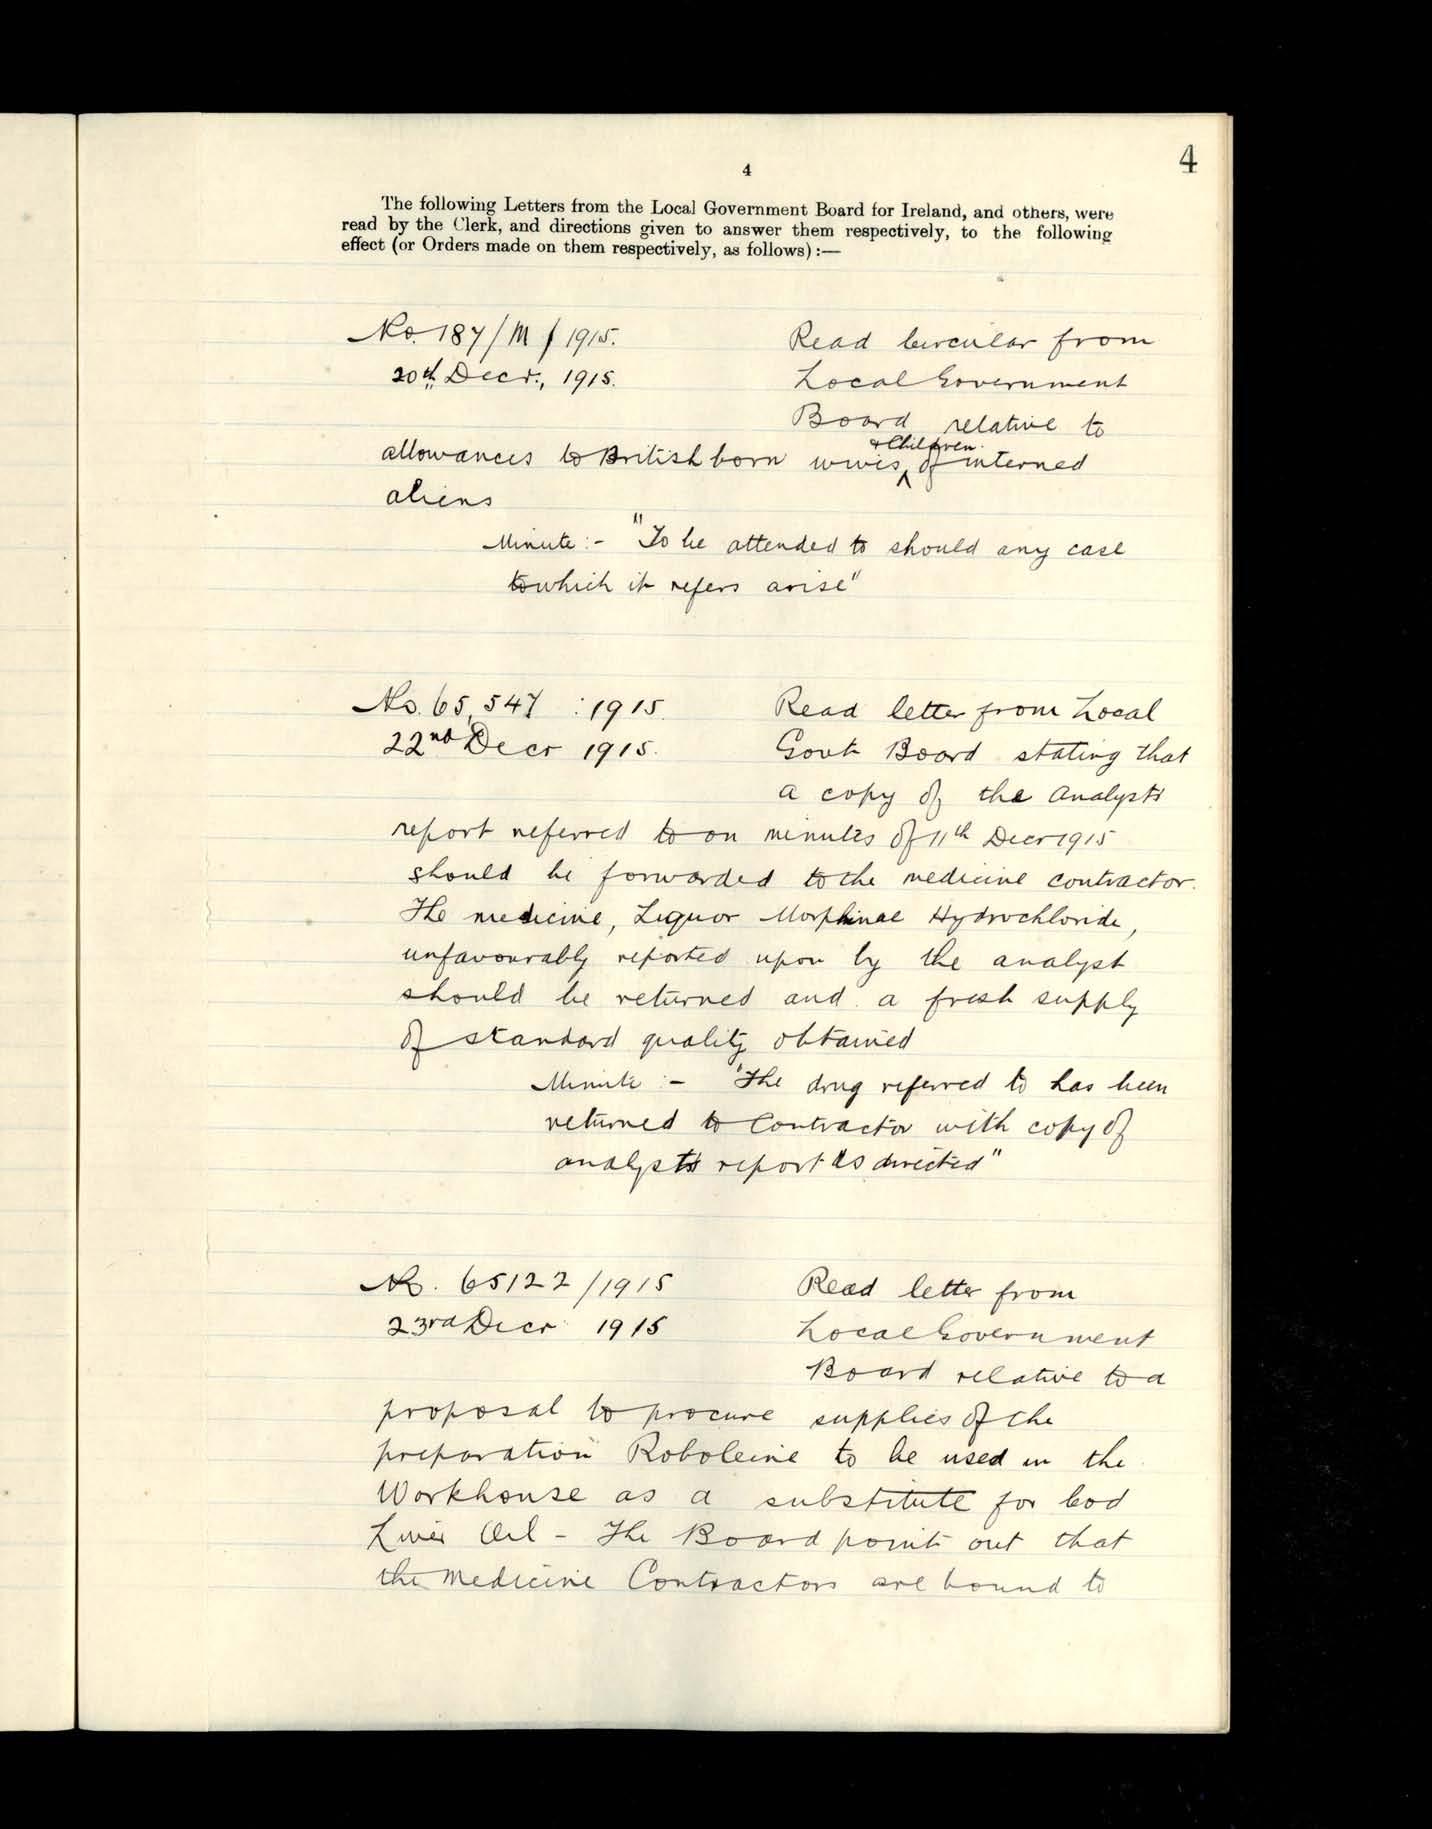 4
4
The following Letters from the Local Government Board for Ireland, and others, were
read by the Clerk, and directions given to answer them respectively, to the following
effect (or Orders made on them respectively, as follows):—
No. 187/M/1915. Read Circular from
20th Decr., 1915. Local Government
Board relative to
& Children
allowances to British born wives ^ of interned
aliens
Minute:- "To be attended to should any case
to which it refers arise"
No. 65,547 : 1915. Read letter from Local
22nd Decr 1915. Govt Board stating that
a copy of the Analysts
report referred to on minutes of 11th Decr 1915
should be forwarded to the medicine contractor.
The medicine, Liquor Morphinae Hydrochloride,
unfavourably reported upon by the analyst
should be returned and a fresh supply
of standard quality obtained
Minute:- "The drug referred to has been
returned to Contractor with copy of
analysts report as directed"
No. 65122/1915 Read letter from
23rd Decr 1915 Local Government
Board relative to a
proposal to procure supplies of the
preparation Roboleine to be used in the
Workhouse as a substitute for Cod
Liver Oil - The Board point out that
the Medicine Contractors are bound to